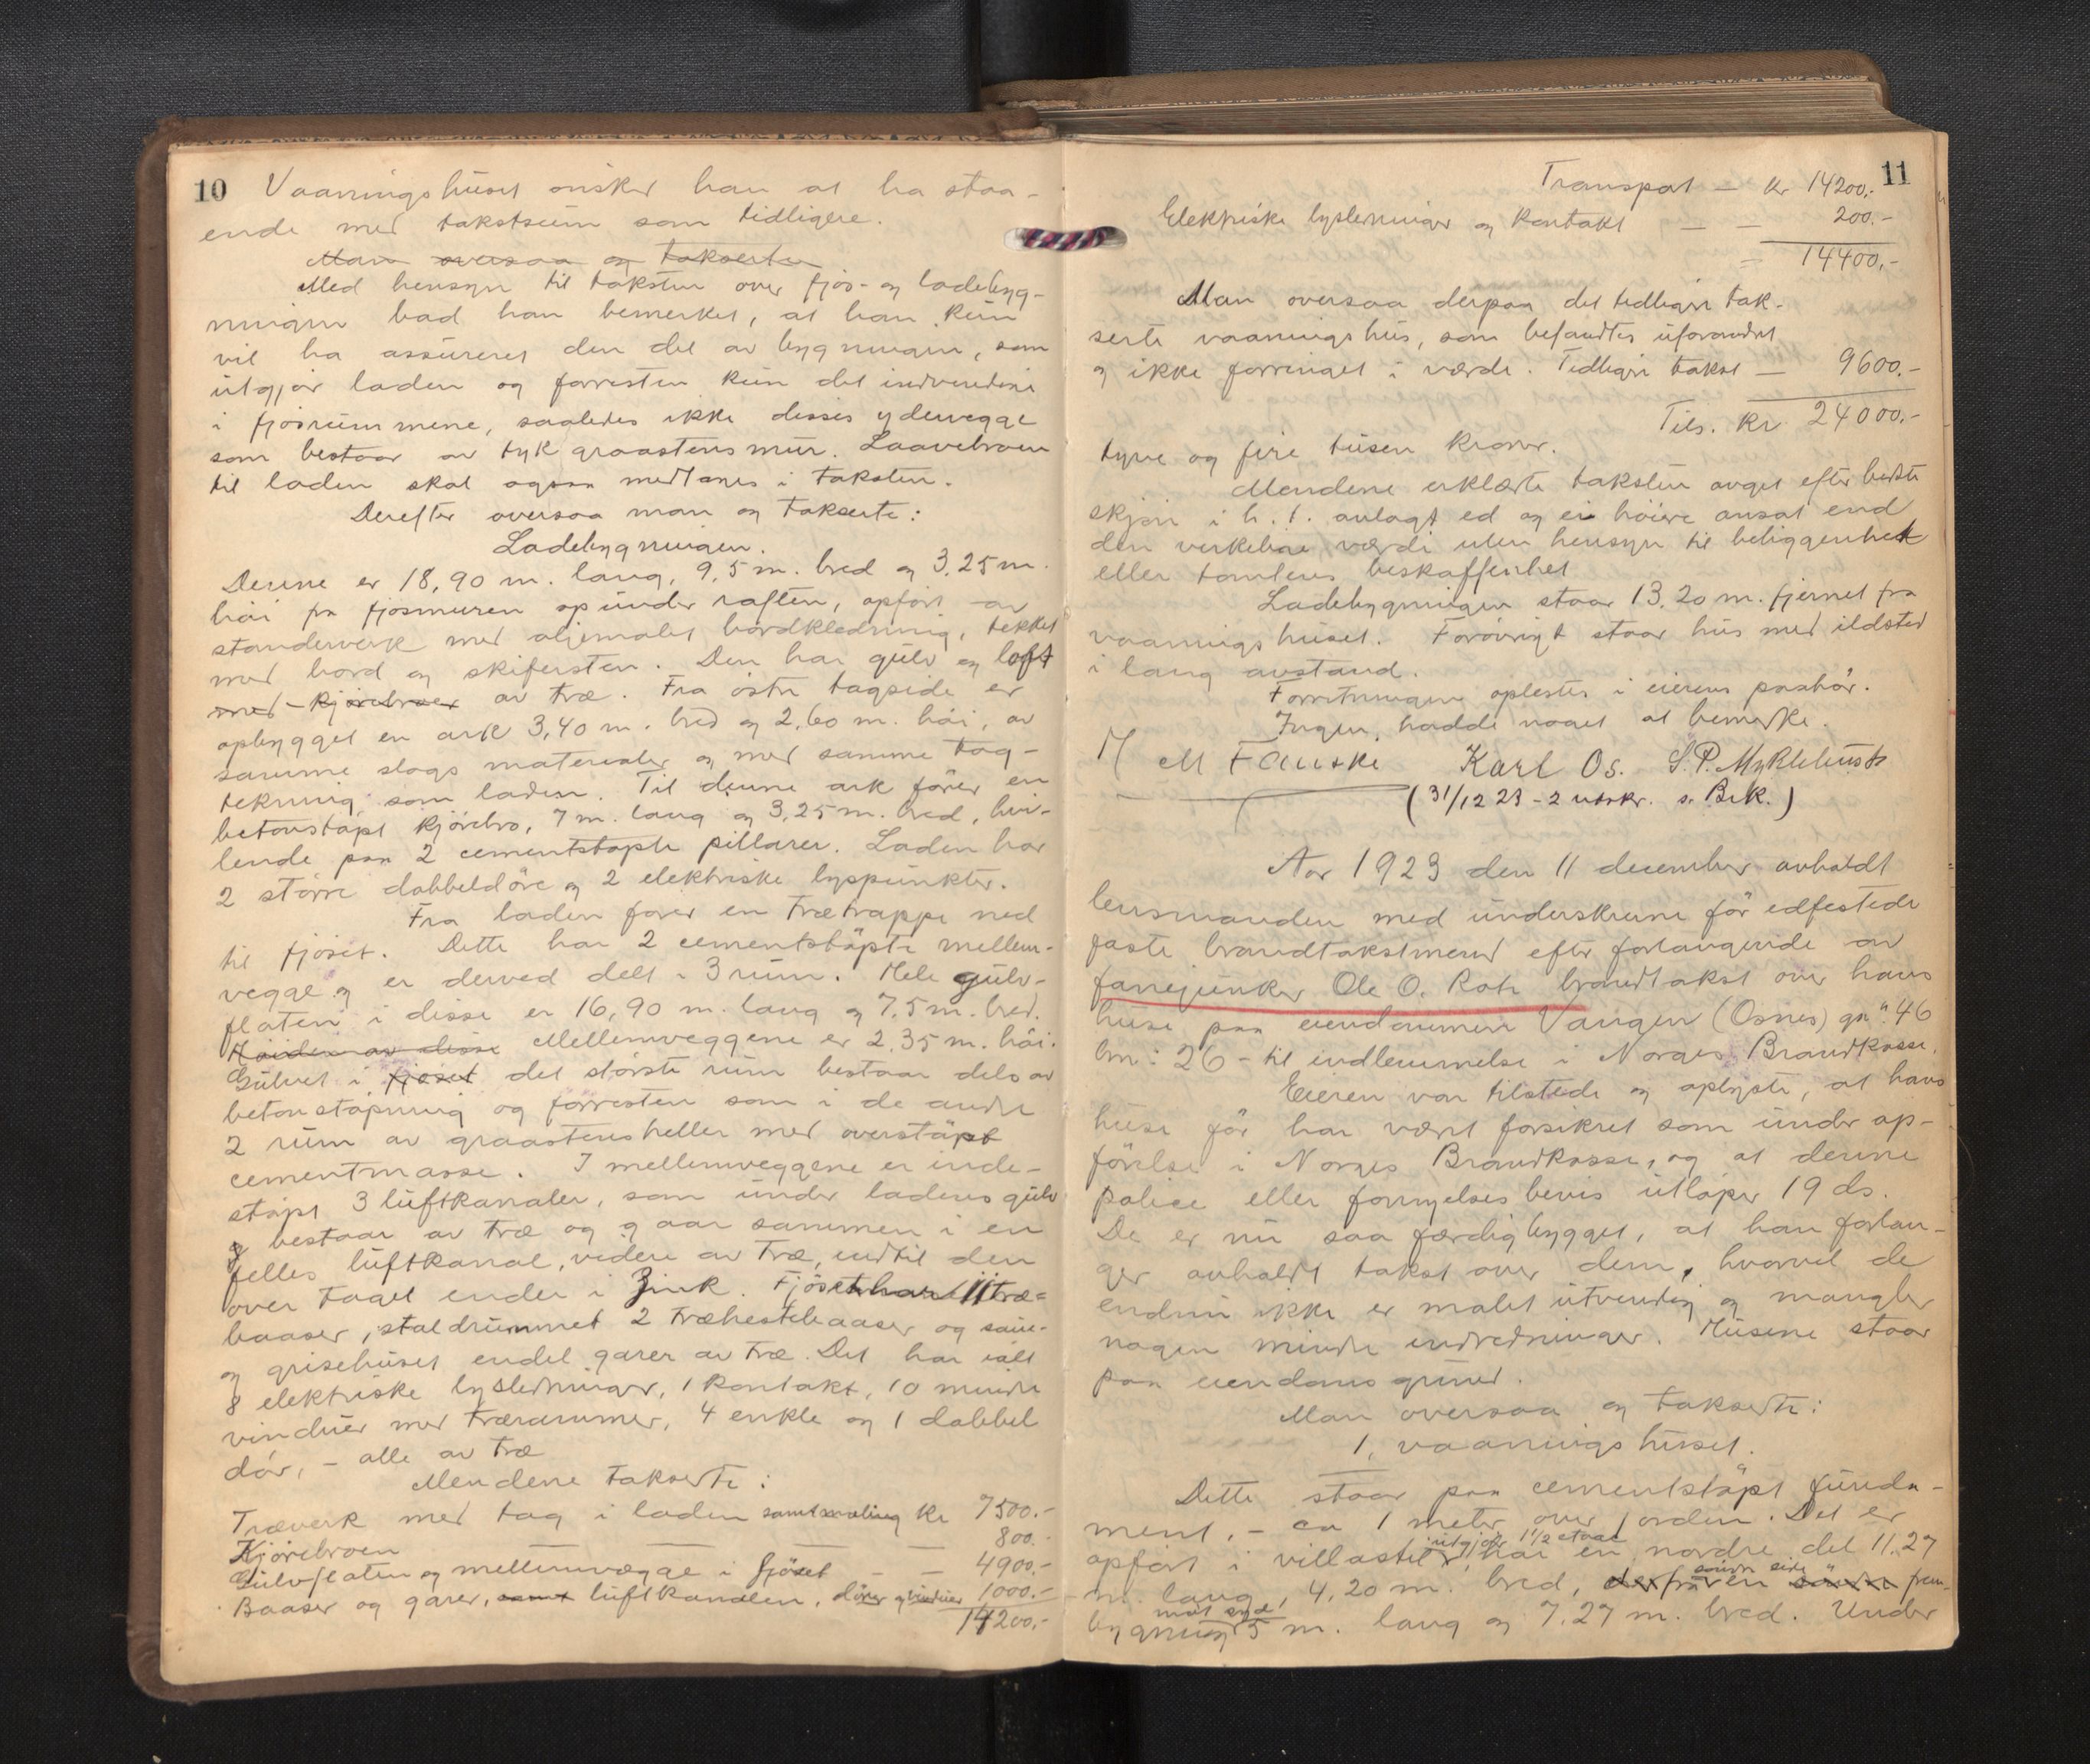 10 Vaaningshuset önsker han at ha staa-
ende med takstsum som tidligere.
Man oversaa og takserte
Med hensyn til taksten over fjös- og ladebyg-
ningen bad han bemerket, at han kun
vil ha assureret den del av bygningen, som
utgjör laden og forresten kun det indvendige
i fjösrummene, saaledes ikke disses ydervegge
som bestaar av tyk graastensmur. Laavebroen
til laden skal ogsaa medtages i taksten.
Derefter oversaa man og takserte:
Ladebygningen.
Denne er 18,90 m. lang, 9,5 m. bred og 3,25 m.
höi fra fjösmuren op under raften, opfört av
standerverk med oljemalet bordklædning, tekket
med bord og skifersten. Den har gulv og loft
med kjörebroer av træ. Fra östre tagside er
opbygget en ark 3,40 m. bred og 2,60 m. höi, av
samme slags materialer og med samme tag-
tekning som laden. Til denne ark förer en
betonstöpt kjörebro, 7 m. lang og 3,25 m. bred, hvi-
lende paa 2 cementstöpte pillarer. Laden har
2 större dobbeldöre og 2 elektriske lyspunkter.
Fra laden förer en trætrappe ned
til fjöset. Dette har 2 cementstöpte mellem-
vegge og er derved delt i 3 rum. Hele gulv-
flaten i disse er 16,90 m. lang og 7,5 m. bred.
Höiden av disse Mellemveggene er 2,35 m. höi.
Gulvet i fjöset det störste rum bestaar dels av
betonstöpning og forresten som i de andre
2 rum av graastensheller med overstöpt
cementmasse. I mellemveggene er inde-
støpt 3 luftkanaler, som under ladens gulv
bestaar av træ og gaar sammen i en
felles luftkanal, videre av træ, indtil den
over taget ender i Zink. Fjöset har 11 træ-
baaser, staldrummet 2 træhestebaaser og saue-
og grisehuset endel garer av træ. Det har ialt
8 elektriske lysledninger, 1 kontakt, 10 mindre
vinduer med trærammer, 4 enkle og 1 dobbel
dör, - alle av træ
Mendene takserte:
Træverk med tag i laden samt maling kr 7500.-
Kjörebroen — — — 800.-
Gulvflaten og mellemvægge i fjöset - — 4900.-
Baaser og garer, samt luftkanalen, dörer og vinduer 1000.-
14200.-
11
Transport — kr 14200.-
Elektriske lysledninger og kontakt — — 200.-
— 14400.-
Man oversaa derpaa det tidligere tak-
serte vaaningshus, som befandtes uforandret
og ikke forringet i værdi. Tidligere takst — 9600.-
Tils. kr 24000.-
tyve og fire tusen kroner.
Mendene erklærte taksten avget efter bedste
skjön i h. t. avlagt ed og ei höiere ansat end
den virkelige værdi uten hensyn til beliggenhet
eller tomtens beskaffenhet
Ladebygningen staar 13,20 m. fjernet fra
vaaningshuset. Forövrigt staar hus med ildsted
i lang avstand.
Forretningen oplestes i eierens paahör.
Ingen hadde noget at bemerke.
M Fauske Karl Os. S. P. Myklebust
(31/12 23 - 2 utskr. s. Brk.)
Aar 1923 den 11 december avholdt
lensmanden med underskrevne för edfestede
faste brandtakstmend efter forlangende av
fanejunker Ole O. Rots brandtakst over hans
huse paa eiendommen Vangen (Osnes) gn: 46
bn: 26 - til indlemmelse i Norges Brandkasse.
Eieren var tilstede og oplyste, at hans
huse för har været forsikret som under op-
förelse i Norges Brandkasse, og at denne
police eller fornyelsesbevis utlöper 19 ds.
De er nu saa færdigbygget, at han forlan-
ger avholdt takst over dem, hvorvel de
endnu ikke er malet utvendig og mangler
nogen mindre indredninger. Husene staar
paa eiendoms grund.
Man oversaa og takserte:
1. vaaningshuset.
Dette staar paa cementstöpt funda-
ment, - ca 1 meter over jorden. Det er
opfört i villastil, utgjör 1½ etage har en nordre del 11.27
m. lang, 4,20 m. bred, derfra en söndre side frem-
bygning mot syd 5 m. lang og 7.27 m. bred. Under